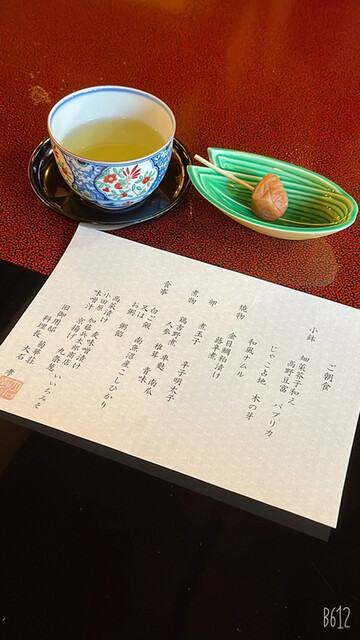 ご朝食
小鉢 細菜芥子和え パプリカ
高野豆富
じゃこ占地 木の芽
和風ナムル
焼物 金目鯛粕漬け
蕗辛煮
卵 煮玉子 辛子明太子
煮物 鶏吉野煮 車麩 南瓜
人参 椎茸 青味
食事 白ご飯 南魚沼産こしひかり
又は
お粥 粥餡
高菜漬け
小田原
味噌汁 麦味噌漬け
加藤兵太郎商店 いいちみそ
京揚げ 九条葱
旧御用邸 菊華荘
料理長 大石 孝
B612